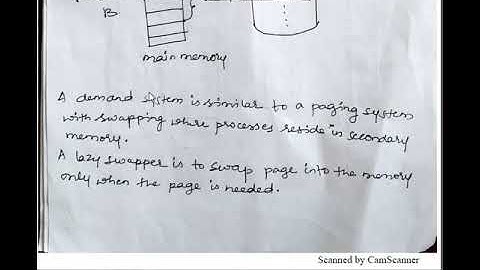 B
main memory
A demand system is similar to a paging system
with swapping where processes reside in secondary
memory.
A lazy swapper is to swap page into the memory
only when the page is needed.
Scanned by CamScanner